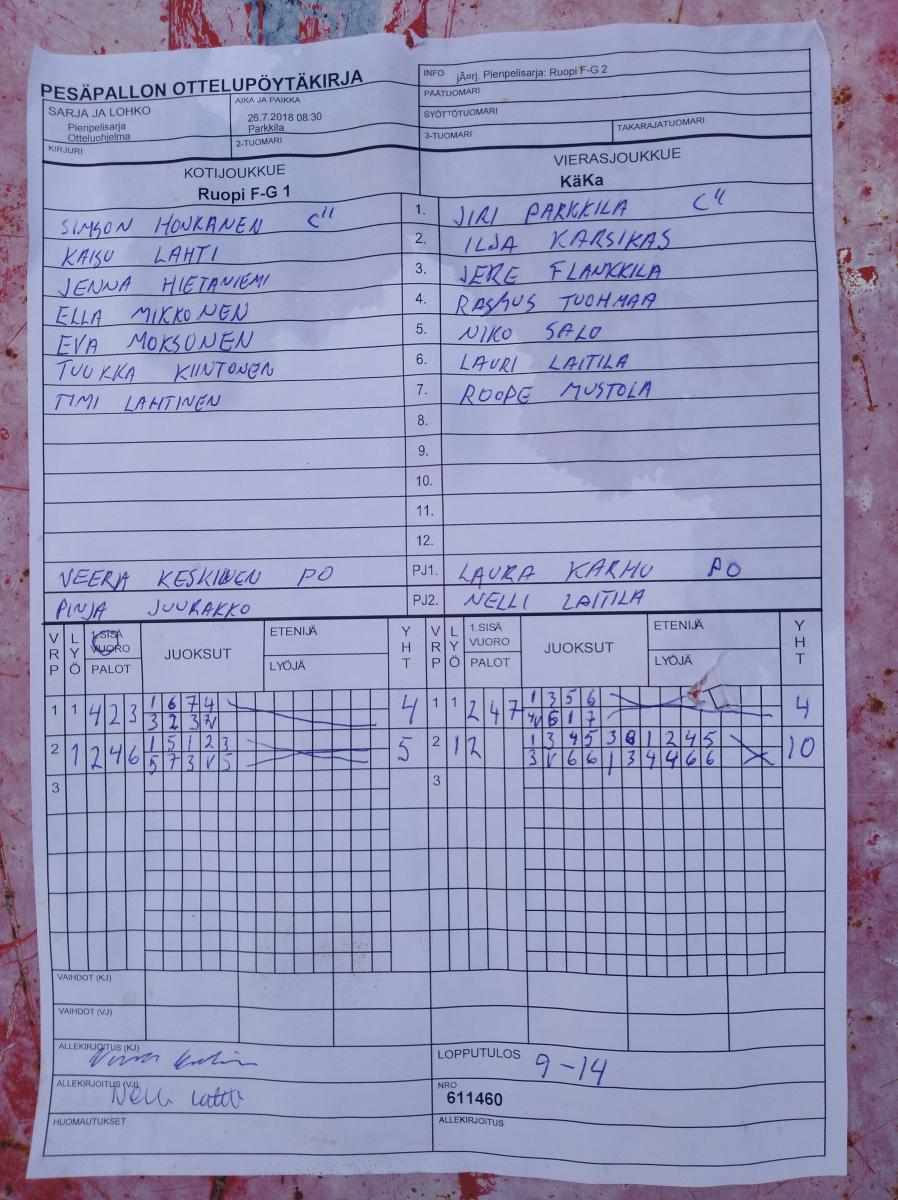 PESÄPALLON OTTELUPÖYTÄKIRJA
SARJA JA LOHKO
Pienpelisarja
Otteluohjelma
KIRJURI
AIKA JA PAIKKA
26.7.2018 08:30
Parkkila
2-TUOMARI
INFO jÃ¤rj. Pienpelisarja: Ruopi F-G 2
PÄÄTUOMARI
SYÖTTÖTUOMARI
3-TUOMARI TAKARAJATUOMARI
KOTIJOUKKUE VIERASJOUKKUE
Ruopi F-G 1 KäKa
SIMSON HONKANEN C" 1. JIRI PARKKILA C"
KAISU LAHTI 2. ILJA KARSIKAS
JENNA HIETANIEMI 3. JERE FLANKKILA
ELLA MIKKONEN 4. RASMUS TUOHMAA
EVA MOKSUNEN 5. NIKO SALO
TUUKKA KIINTONEN 6. LAURI LAITILA
TIMI LAHTINEN 7. ROOPE MUSTOLA
8.
9.
10.
11.
12.
VEERA KESKINEN PO PJ1. LAURA KARHU PO
PINJA JUURAKKO PJ2. NELLI LAITILA
VRP LYÖ 1.SISÄ VUORO PALOT JUOKSUT ETENIJÄ LYÖJÄ YHT VRP LYÖ 1.SISÄ VUORO PALOT JUOKSUT ETENIJÄ LYÖJÄ YHT
1 1 4 2 3 1 6 7 4 4 1 1 2 4 7 1 3 5 6 4
3 2 3 V 6 1 7
2 1 2 4 6 1 5 1 2 3 5 2 1 2 1 3 4 5 3 1 2 4 5 10
5 7 3 V 5 3 V 6 6 1 3 4 4 6 6
3 3
VAIHDOT (KJ)
VAIHDOT (VJ)
ALLEKIRJOITUS (KJ) LOPPUTULOS 9-14
ALLEKIRJOITUS (VJ) NRO
611460
HUOMAUTUKSET ALLEKIRJOITUS